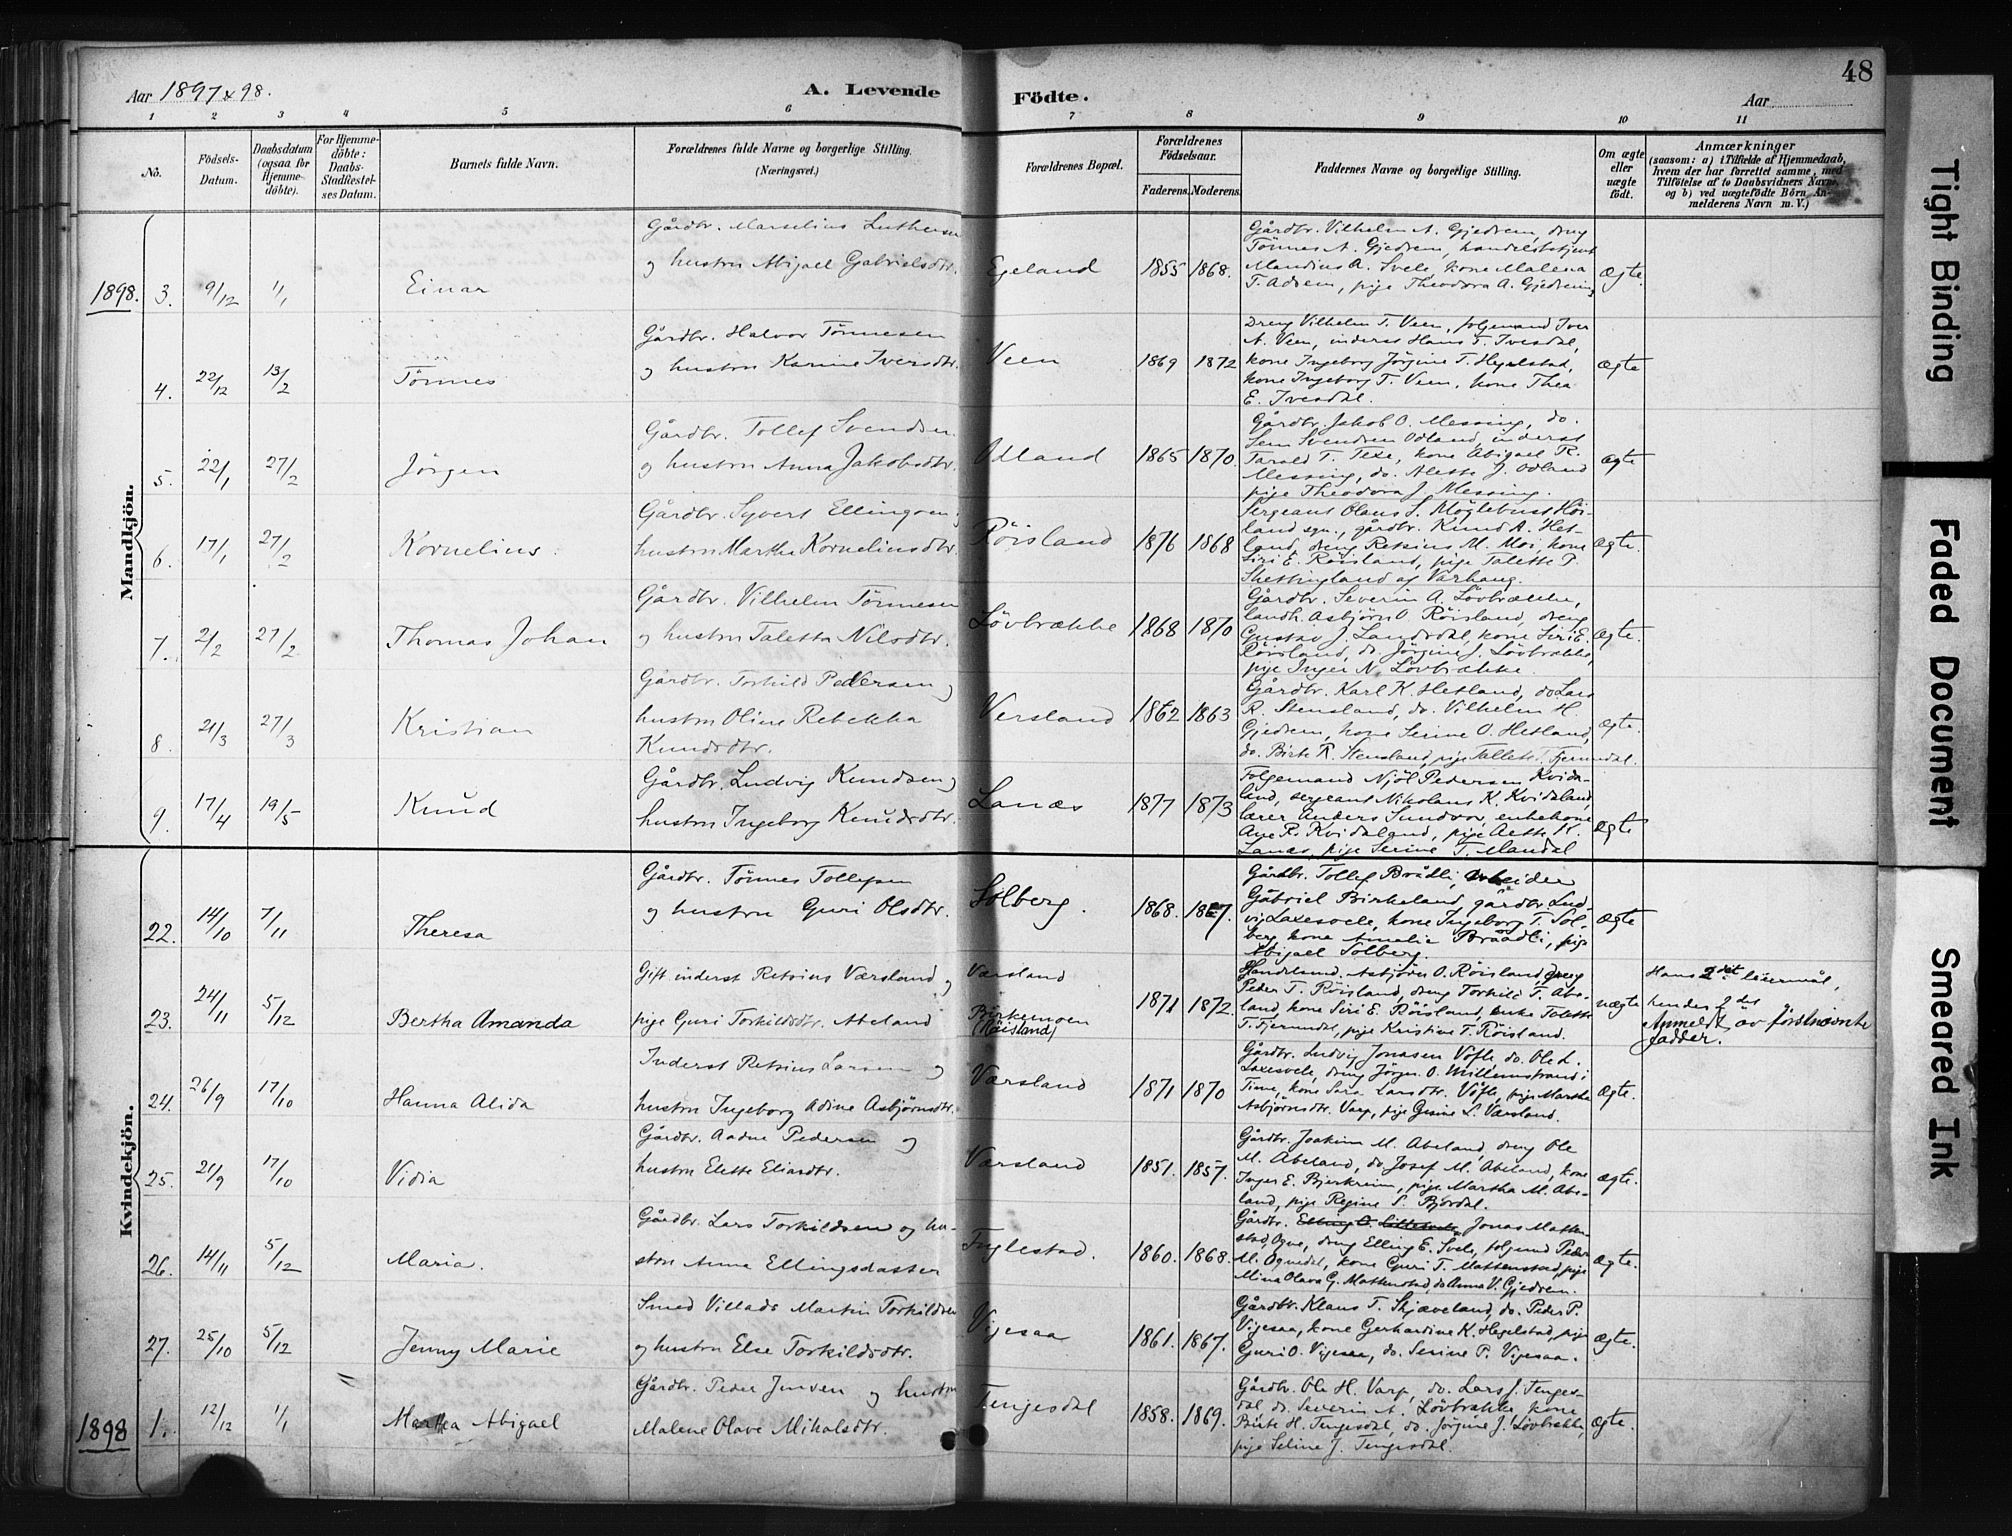 48
Aar 1897 & 98.
A. Levende Födte.
Aar
1 2 3 4 5 6 7 8 9 10 11
No.
Födsels-Datum.
Daabsdatum (ogsaa for Hjemmedöbte).
For Hjemmedöbte: Daabs-Stadfestelses Datum.
Barnets fulde Navn.
Forældrenes fulde Navne og borgerlige Stilling. (Næringsvei.)
Forældrenes Bopæl.
Forældrenes Födselsaar.
Faderens. Moderens.
Faddernes Navne og borgerlige Stilling.
Om ægte eller uægte födt.
Anmærkninger
(saasom: a) i Tilfælde af Hjemmedaab, hvem der har forrettet samme, med Tilföielse af to Daabsvidners Navne, og b) ved uægtefödte Börn Anmelderens Navn m. V.)
Mandkjön.
1898. 3. 9/12 1/1 Einar
Gårdbr. Marselius Luthersen
og hustru Abigael Gabrielsdtr.
Egeland 1855 1868.
Gårdbr. Vilhelm A. Gjedrem, dreng
Tönnes A. Gjedrem, handelsbetjent
Mandius A. Svele, kone Malena
T. Adsem, pige Theodora A. Gjedrem
ægte.
4. 22/12 13/2 Tönnes
Gårdbr. Halvor Tönnesen
og hustru Karine Iversdtr.
Veen 1869 1872
Dreng Vilhelm T. Veen, folgemand Iver
A. Veen, inderst Hans T. Ivesdal,
kone Ingeborg Jörgine T. Hegelstad,
kone Ingeborg T. Veen, kone Thea
E. Ivesdal.
ægte
5. 22/1 27/2 Jörgen
Gårdbr. Tollef Svendsen
og hustru Anna Jakobsdtr.
Odland 1865 1870.
Gårdbr. Jakob O. Messing, do.
Sem Svendsen Odland, inderst
Tarald T. Texe, kone Abigael R.
Messing, do. Alette J. Odland
pige Theodora J. Messing.
ægte
6. 17/1 27/2 Kornelius.
Gårdbr. Syvert Ellingsen
hustru Marthe Korneliusdtr.
Röisland 1876 1868
Sergeant Olaus S. Möglebust Hös-
land sgn., gårdbr. Knud A. Het-
land, dreng Retsius M. Moi, kone
Siri E. Röisland, pige Talette P.
Skettingland af Varhaug.
ægte.
7. 2/2 27/2 Thomas Johan
Gårdbr. Vilhelm Tönnesen
og hustru Taletta Nilsdtr.
Lövbrække 1868 1870
Gårdbr. Severin A. Lövbrække,
landh. Asbjörn O. Röisland, dreng
Gustav J. Landsdal, kone Siri E.
Röisland, do. Jörgine J. Lövbrække,
pige Inger N. Lövbrække
ægte.
8. 21/3 27/3 Kristian
Gårdbr. Torkild Pedersen og
hustru Oline Rebekka
Knudsdtr.
Versland 1862 1863
Gårdbr. Karl K. Hetland, do Lars
R. Stensland, do. Vilhelm H.
Gjedrem, kone Serine O. Hetland,
do. Birte R. Stensland, pige Tallete T. Fjermdal.
ægte.
9. 17/4 19/5 Knud
Gårdbr. Ludvig Knudsen og
hustru Ingeborg Knudsdtr.
Lanæs 1877 1873
Folgemand Njöl Pedersen Kvida-
land, sergeant Nikolaus K. Kvidaland,
lærer Anders Sundvor, enkekone
Ane R. Kvidaland, pige Aette K.
Lanæs, pige Serine T. Mandal
ægte
Kvindekjön.
22. 14/10 7/11 Theresa
Gårdbr. Tönnes Tollefsen
og hustru Guri Olsdtr.
Solberg. 1868. 1867.
Gårdbr. Tollef Brådli, arbeider
Gabriel Birkeland, gårdbr. Lud-
vig Laxesvele, kone Ingeborg T. Sol-
berg, kone Amalie Braadli, pige
Abigael Solberg.
ægte
23. 24/11 5/12 Bertha Amanda
Gift inderst Retsius Værsland og
pige Guri Torkildsdtr. Abeland
Værsland
Birkemoen
(Röisland)
1871 1872.
Handelsmd. Asbjörn O. Röisland, dreng
Peder T. Röisland, dreng Torkild T. Abe-
land, kone Siri E. Röisland, enke Talette
T. Fjermdal, pige Kristine T. Röisland.
uægte
Hans 2det leiermål,
hendes 2det
Anmeldt av förstnævnte
fadder.
24. 26/9 17/10 Hanna Alida
Inderst Retsius Larsen og
hustru Ingeborg Adine Asbjörnsdtr.
Værsland 1871 1870
Gårdbr. Ludvig Jonasen Vöfle, do. Ole L.
Laxesvele, dreng Jörgen O. Mellemstrand i
Time, kone Sara Larsdtr. Vöfle, pige Martha
Asbjörnsdtr. Varp, pige Gesine L. Værsland.
ægte.
25. 21/9 17/10 Vidia
Gårdbr. Aadne Pedersen og
hustru Elette Eliasdtr.
Værsland 1851. 1857.
Gårdbr. Joakim M. Abeland, dreng Ole
M. Abeland, do. Josef M. Abeland, kone
Inger E. Bjerkreim, pige Martha M. Abe-
land, pige Regine S. Bjordal.
ægte.
26. 14/11 5/12 Maria.
Gårdbr. Lars Torkildsen og hu-
stru Anna Ellingsdatter
Fuglestad. 1860. 1868.
Gårdbr. Jonas Matten-
stad, Ogne, dreng Elling E. Svele, folgemd Peder
M. Ognedal, kone Guri T. Mattenstad, pige
Mina Olava G. Mattenstad, do Anna V. Gjedrem.
ægte.
27. 25/10 5/12 Jenny Marie
Smed Villads Martin Torkildsen
og hustru Else Torkildsdtr.
Vigesaa 1861. 1867.
Gårdbr. Klaus T. Skjæveland, do. Peder P.
Vigesaa, kone Gerhardine K. Hegelstad, pige
Guri O. Vigesaa, do. Serine P. Vigesaa.
ægte.
1898 1. 12/12 1/1 Martha Abigael
Gårdbr. Peder Jensen og hustru
Malene Olave Mikalsdtr.
Tengesdal 1858. 1869.
Gårdbr. Ole H. Varp, do. Lars J. Tenges-
dal, do. Severin A. Lövbrække, kone
Birte H. Tengesdal, do. Jörgine J. Lövbrække,
pige Seline J. Tengesdal.
ægte.
Tight Binding
Faded Document
Smeared Ink